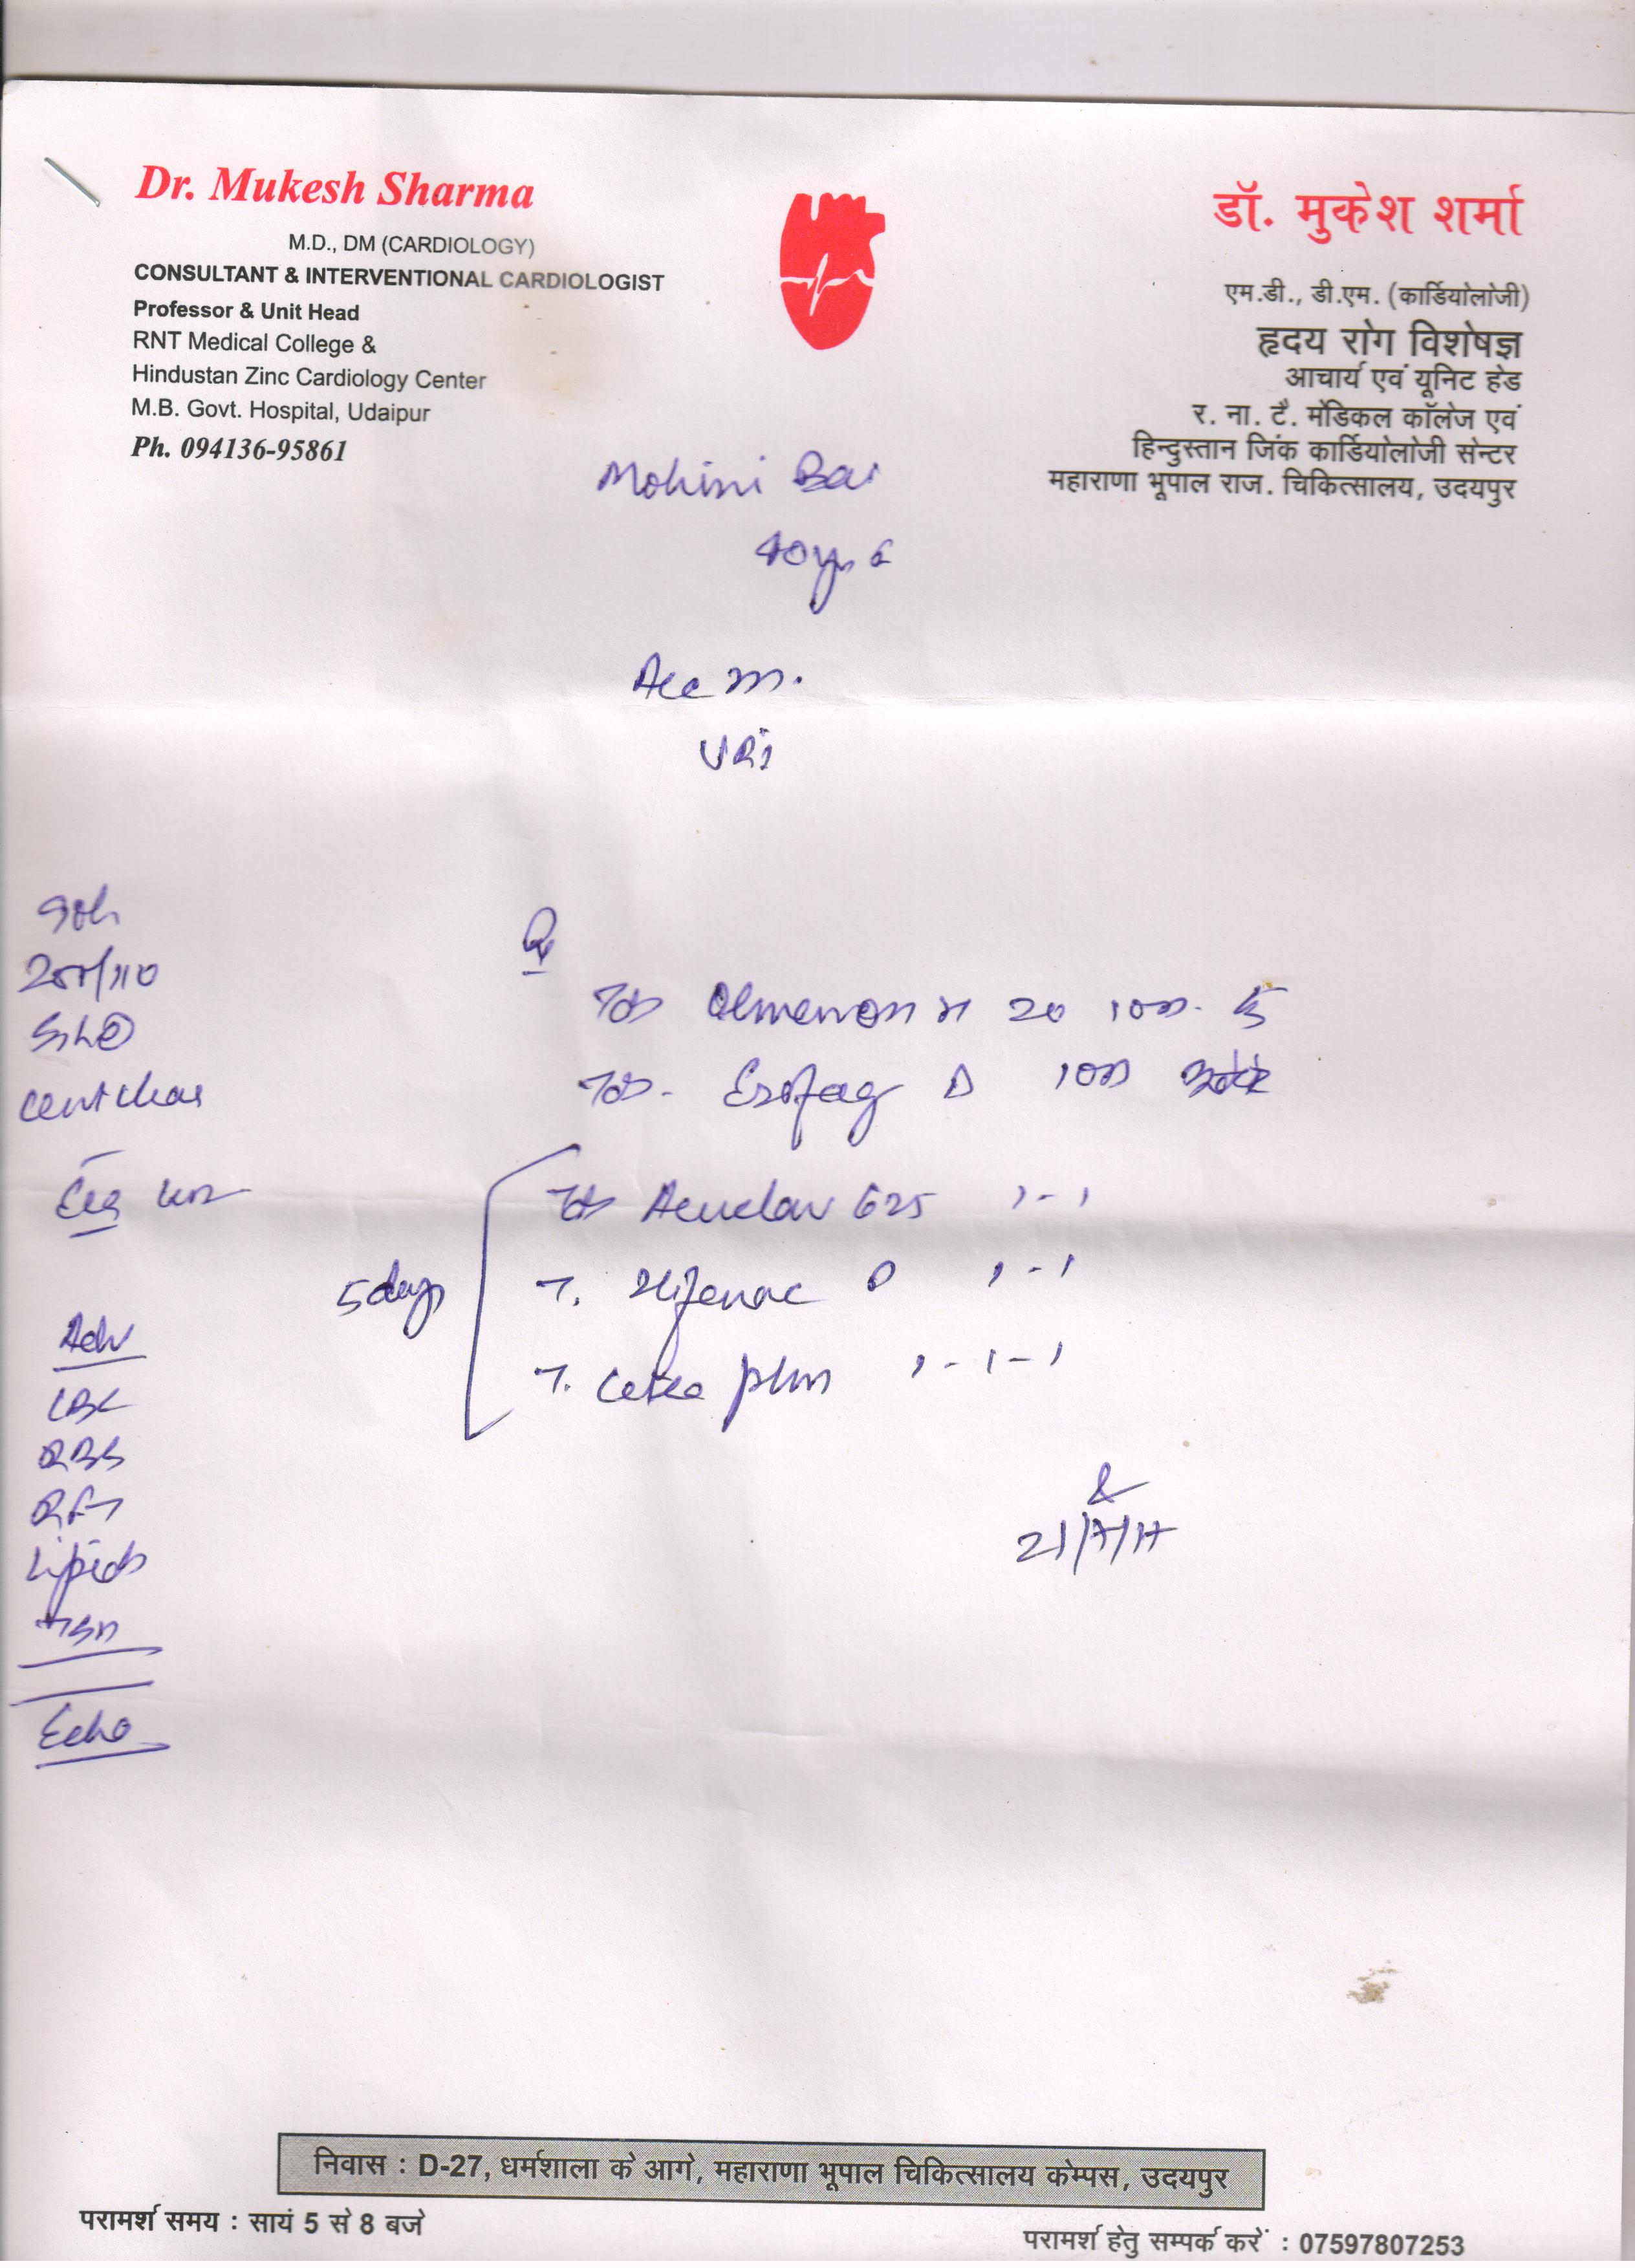 Dr. Mukesh Sharma
M.D., DM (CARDIOLOGY)
CONSULTANT & INTERVENTIONAL CARDIOLOGIST
Professor & Unit Head
RNT Medical College &
Hindustan Zinc Cardiology Center
M.B. Govt. Hospital, Udaipur
Ph. 094136-95861
डॉ. मुकेश शर्मा
एम.डी., डी.एम. (कार्डियोलोजी)
हृदय रोग विशेषज्ञ
आचार्य एवं यूनिट हेड
र. ना. टै. मेडिकल कॉलेज एवं
हिन्दुस्तान जिंक कार्डियोलोजी सेन्टर
महाराणा भूपाल राज. चिकित्सालय, उदयपुर
Mohini Bai
40yr
URI
200/110
Adv
CBC
RBS
RFT
Lipids
TSH
Echo
Tab 20 1OD
Tab. D 1OD
5 days
Tab Acuclav 625 1-1
T. Hifenac D 1-1
T. plus 1-1-1
निवास : D-27, धर्मशाला के आगे, महाराणा भूपाल चिकित्सालय केम्पस, उदयपुर
परामर्श समय : सायं 5 से 8 बजे
परामर्श हेतु सम्पर्क करें : 07597807253